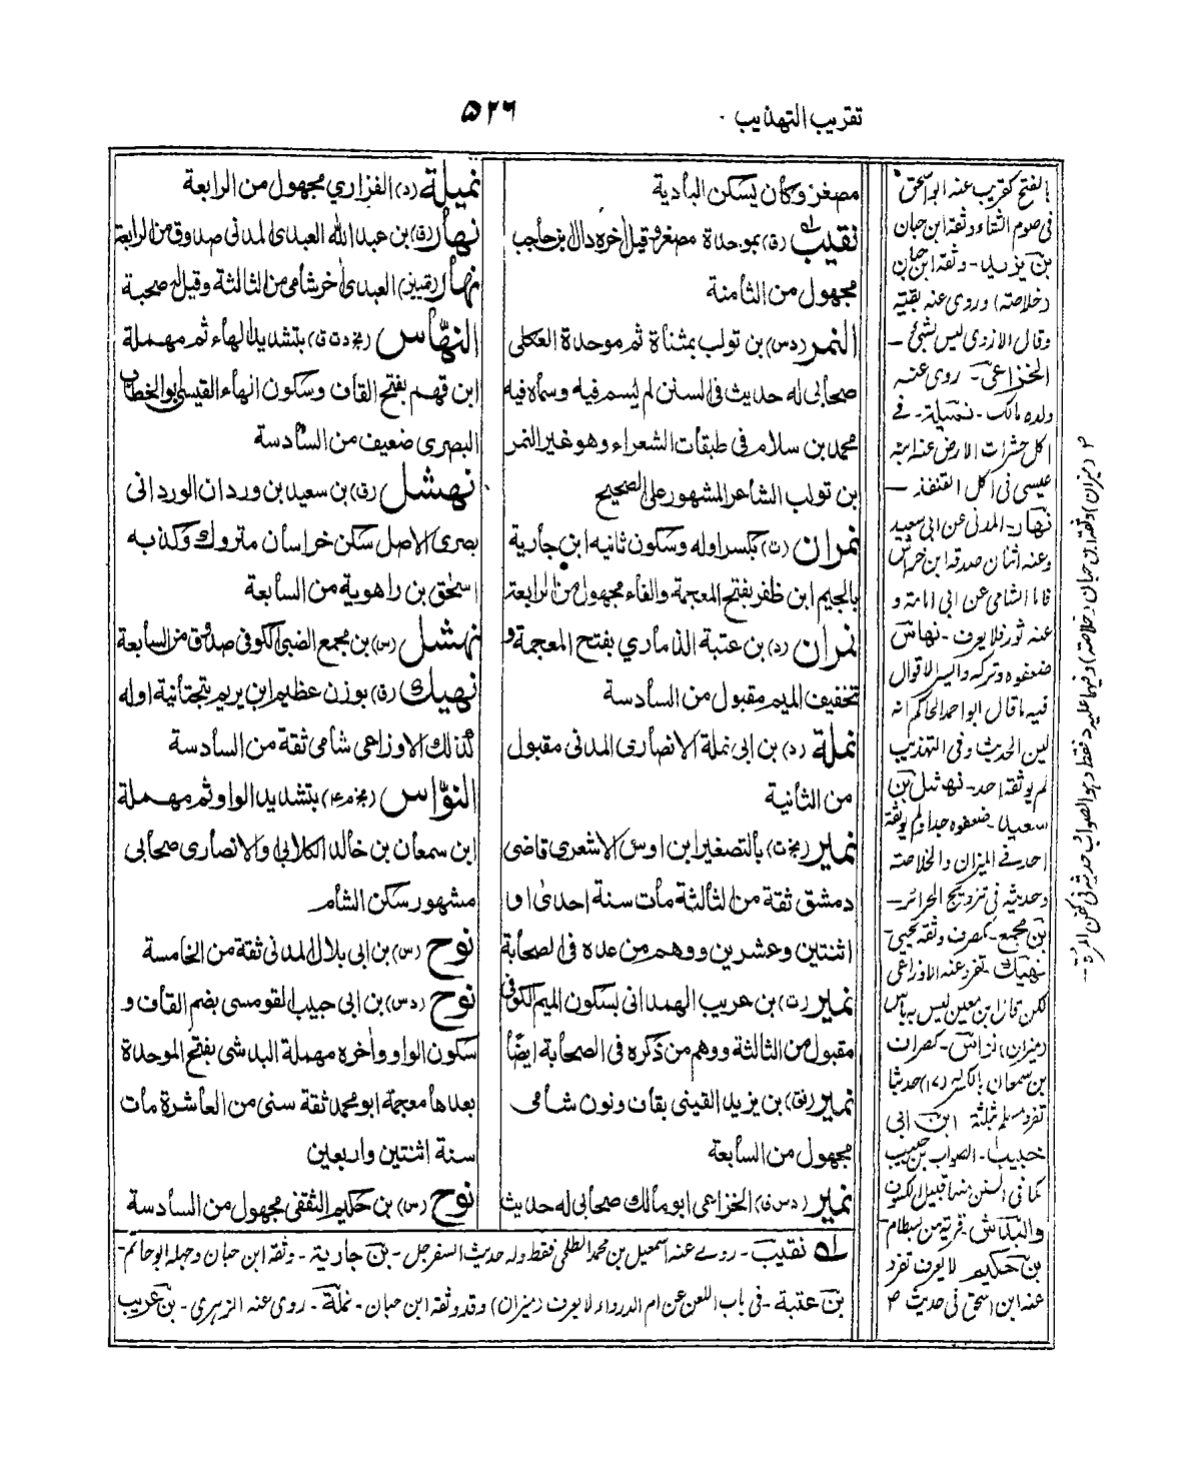 تقريب التهذيب
۵۲۶
مصغر وكان يسكن البادية
نقيب (ق) بموحدة مصغر وقيل آخره دال ابن حاجب
مجهول من الثامنة
النمر (د س) بن تولب بمثناة ثم موحدة العكلى
صحابى له حديث فى السنن لم يسم فيه وسماه فيه
محمد بن سلام فى طبقات الشعراء وهو غير النمر
بن تولب الشاعر المشهور على الصحيح
نمران (ق) بكسر اوله وسكون ثانيه ابن جارية
بالجيم ابن ظفر بفتح المعجمة والفاء مجهول من الرابعة
نمران (د) بن عتبة الذماري بفتح المعجمة و
تخفيف الميم مقبول من السادسة
نملة (د) بن ابى نملة الانصارى المدنى مقبول
من الثانية
نمير (بخ ت) بالتصغير ابن اوس الاشعرى قاضى
دمشق ثقة من الثالثة مات سنة احدى او
اثنتين وعشرين ووهم من عده فى الصحابة
نمير (ت) بن عريب الهمدانى بسكون الميم الكوفى
مقبول من الثالثة ووهم من ذكره فى الصحابة ايضًا
نمير (فق) بن يزيد القينى بقاف ونون شامى
مجهول من السابعة
نمير (د س ق) الخزاعى ابو مالك صحابى له حديث
نميلة (د) الفزاري مجهول من الرابعة
نهار (ق) بن عبد الله العبدى المدنى صدوق من الرابعة
نهار (تمييز) العبدى آخر شامى من الثالثة وقيل له صحبة
النهّاس (بخ د ت ق) بتشديد الهاء ثم مهملة
ابن قهم بفتح القاف وسكون الهاء القيسى ابو الخطاب
البصرى ضعيف من السادسة
نهشل (ق) بن سعيد بن وردان الوردانى
بصرى الاصل سكن خراسان متروك وكذبه
اسحق بن راهوية من السابعة
نهشل (س) بن مجمع الضبى الكوفى صدوق من السابعة
نهيك (ق) بوزن عظيم ابن يريم بتحتانية اوله
كذلك الاوزاعى شامى ثقة من السادسة
النوّاس (بخ م ٤) بتشديد الواو ثم مهملة
ابن سمعان بن خالد الكلابي والانصارى صحابى
مشهور سكن الشام
نوح (س) بن ابى بلال المدنى ثقة من الخامسة
نوح (د س) بن ابى حبيب القومسى بضم القاف و
سكون الواو وآخره مهملة البدشى بفتح الموحدة
بعدها معجمة ابو محمد ثقة سنى من العاشرة مات
سنة اثنتين واربعين
نوح (س) بن حكيم الثقفى مجهول من السادسة
له نقيب - روى عنه اسمعيل بن محمد الطلحى فقط وله حديث السفرجل - بن جارية - وثقه ابن حبان وجهله ابو حاتم -
بن عتبة - فى باب اللعن عن ام الدرداء لا يعرف (ميزان) وقد وثقه ابن حبان - نملة - روى عنه الزهرى - بن عريب
بالفتح كقريب عنه ابو اسحق
فى صوم الشتاء وثقه ابن حبان
بن يزيد - وثقه ابن حبان
(خلاصه) وروى عنه بقية
وقال الازدى ليس بشئ -
الخزاعى - روى عنه
ولده مالك - نميلة - فى
اكل حشرات الارض عنه ابنه
عيسى فى اكل القنفذ -
نهار - المدنى عن ابى سعيد
وعنه اثنان صدقه ابن خراش
فاما الشامى عن ابى امامة و
عنه ثور فلا يعرف - نهاس
ضعفوه وتركه وايسر الاقوال
فيه ما قال ابو احمد الحاكم انه
لين الحديث وفى التهذيب
لم يوثقه احد - نهشل بن
سعيد - ضعفوه جدا ولم يوثقه
احد فى الميزان والخلاصة
وحديثه فى تزويج الحرائر -
بن مجمع - كمصرف وثقه يحيى -
نهيك - تفرد عنه الاوزاعى
لكن قال ابن معين ليس به باس
(ميزان) نواس - كصراف
بن سمعان بالكسر (١٧) حديثا
تفرد مسلم بثلثة ابن ابى
حبيب - الصواب بن حبيب
كما فى السنن
والبدش - قرية من بسطام -
بن حكيم لا يعرف تفرد
عنه ابن اسحق فى حديث ۳
۳ (ميزان) وثقه ابن حبان (خلاصه) وفيما عليه د فقط وهو الصواب حديثه فى كفن المرأة --